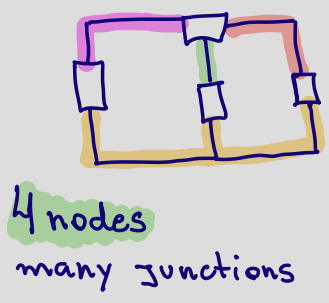 4 nodes
many junctions